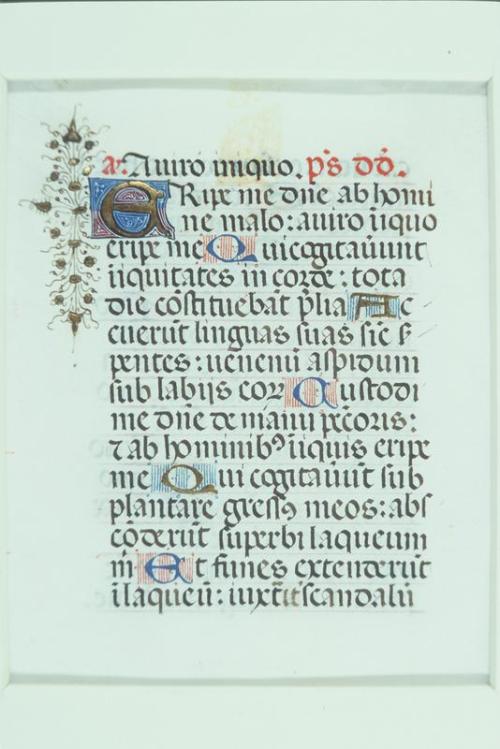 a: A viro iniquo. p̄s dd̄.
ERipe me dn̄e ab homi
ne malo: a viro īiquo
eripe me Qui cogitaūunt
īiquitates in corde: tota
die cōstituebāt p̄lia Ac
cuerūt linguas suas sic̄ s̄
pentes: venenū aspidum
sub labijs eoꝝ Custodi
me dn̄e de manu pec̄toris:
⁊ ab hominibꝰ īiquis eripe
me Qui cogitauūt sub
plantare gressꝰ meos: abs
cōderūt superbi laqueum
m̄ Et funes extenderūt
ī laqueū: iuxta it̄ scandalū